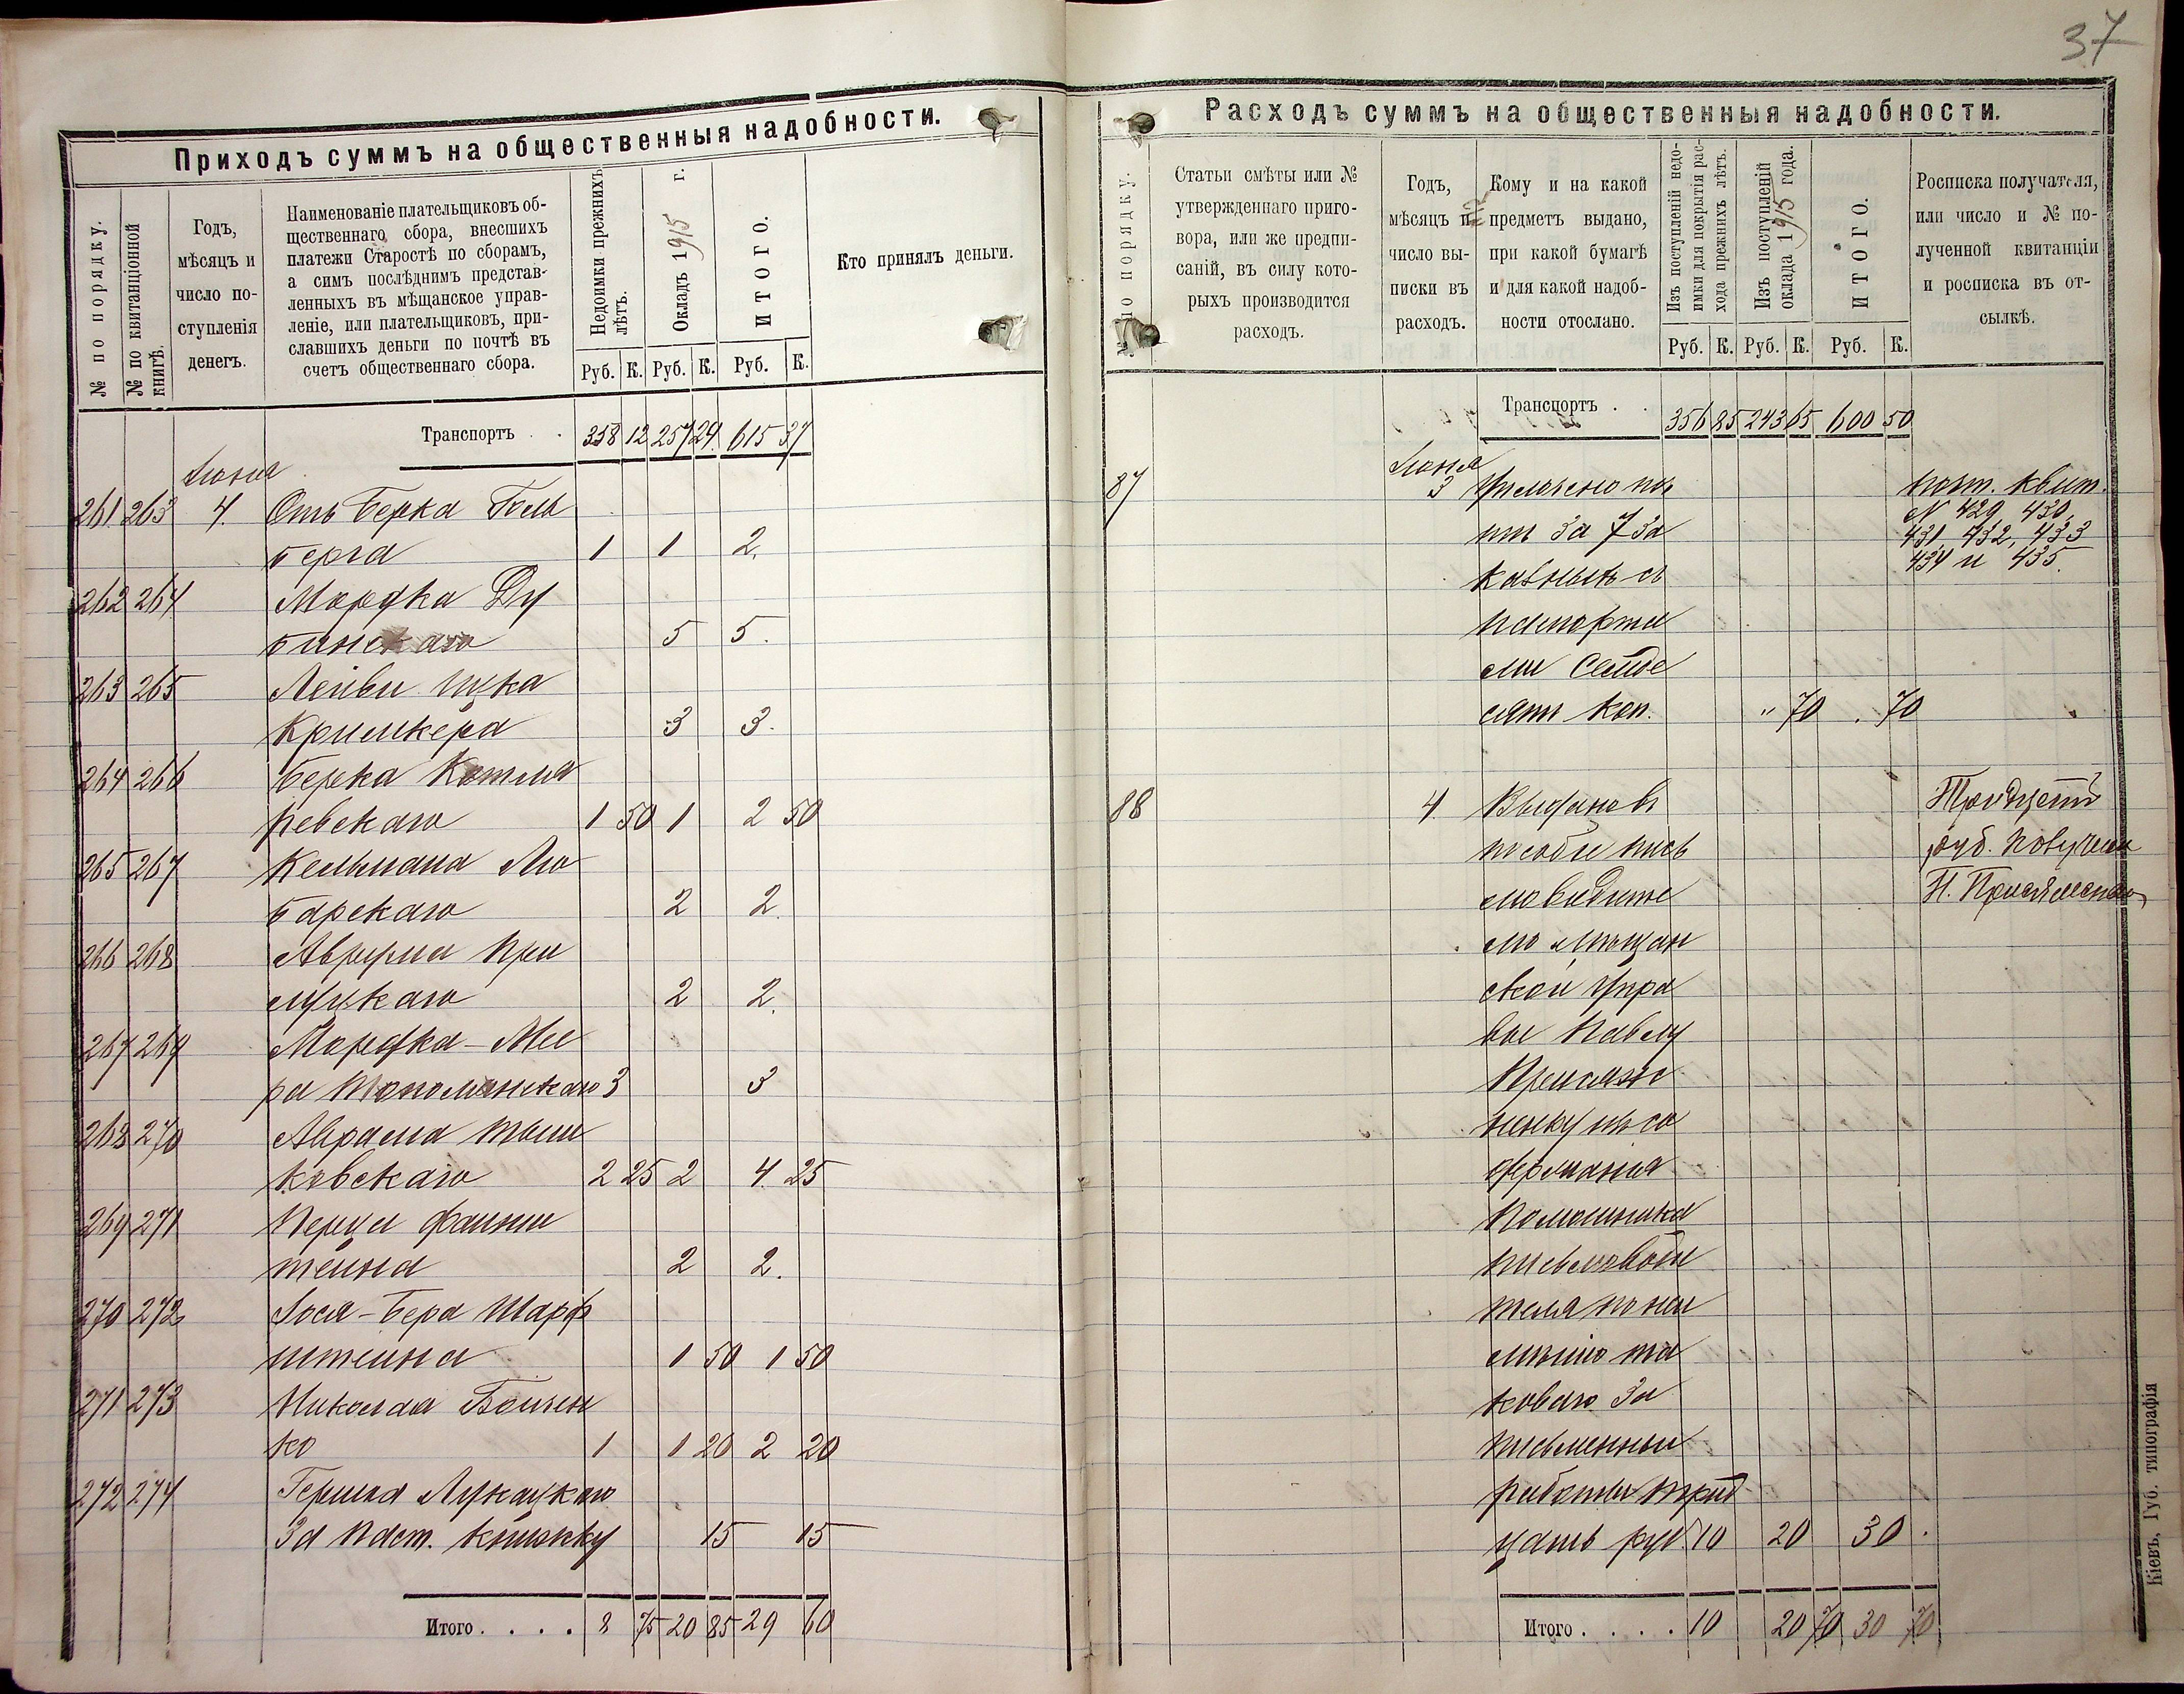 37
Приходъ суммъ на общественныя надобности.
№ по порядку.
№ по квитанціонной книгѣ.
Годъ,
мѣсяцъ и
число по-
ступленія
денегъ.
Наименованіе плательщиковъ об-
щественнаго сбора, внесшихъ
платежи Старостѣ по сборамъ,
а симъ послѣднимъ представ-
ленныхъ въ мѣщанское управ-
леніе, или плательщиковъ, при-
славшихъ деньги по почтѣ въ
счетъ общественнаго сбора.
Недоимки прежнихъ
лѣтъ.
Окладъ 1915 г.
ИТОГО.
Кто принялъ деньги.
Руб. К. Руб. К. Руб. К.
Транспортъ . . 358 12 257 29 615 37
Іюня
261 263 4. Отъ Берка Голь
берга 1 1 2.
262 264 Мордка Ду
бинскаго 5 5.
263 265 Лейви Ицка
Кримкера 3 3.
264 266 Берка Котля
ревскаго 1 50 1 2 50
265 267 Кельмана Лю
барскаго 2 2.
266 268 Аврума При
луцкаго 2 2.
267 269 Мордка-Ме
ра 3 3
268 270 Аврама
ковскаго 2 25 2 4. 25
269 271 Перца Фаин
теина 2 2.
270 272 Іося-Бера Шарф
штеина 1 50 1 50
271 273 Николая Боичен
ко 1 1 20 2 20
272 274 Гершка
За паст. книжку 15 15
Итого . . . . 8 75 20 85 29 60
Расходъ суммъ на общественныя надобности.
№ по порядку.
Статьи смѣты или №
утвержденнаго приго-
вора, или же предпи-
саній, въ силу кото-
рыхъ производится
расходъ.
Годъ,
мѣсяцъ и
число вы-
писки въ
расходъ.
Кому и на какой
предметъ выдано,
при какой бумагѣ
и для какой надоб-
ности отослано.
Изъ поступленій недо-
имки для покрытія рас-
хода прежнихъ лѣтъ.
Изъ поступленій
оклада 1915 года.
ИТОГО.
Росписка получателя,
или число и № по-
лученной квитанціи
и росписка въ от-
сылкѣ.
Руб. К. Руб. К. Руб. К.
Транспортъ . . 356 85 243 65 600 50
Іюня
87 3 Уплочено поч
тѣ за 7 за
казныхъ съ
паспорта
ми семде
сятъ коп. " 70 . 70
почт. квит.
№ 429, 430,
431, 432, 433
434 и 435.
88 4. Выдано въ
пособіе пись
моводите
лю мѣщан
ской Упра
вы Павлу
Присяж
ненку на со
держанія
Помошника
писмоводи
теля по неи
мѣнію та
коваго за
письменныи
работы трид
цать руб. 10 20 30.
Тридцать
руб. получилъ
П. Присяжненко
Итого . . . . 10 20 70 30 70
Кіевъ, Губ. типографія